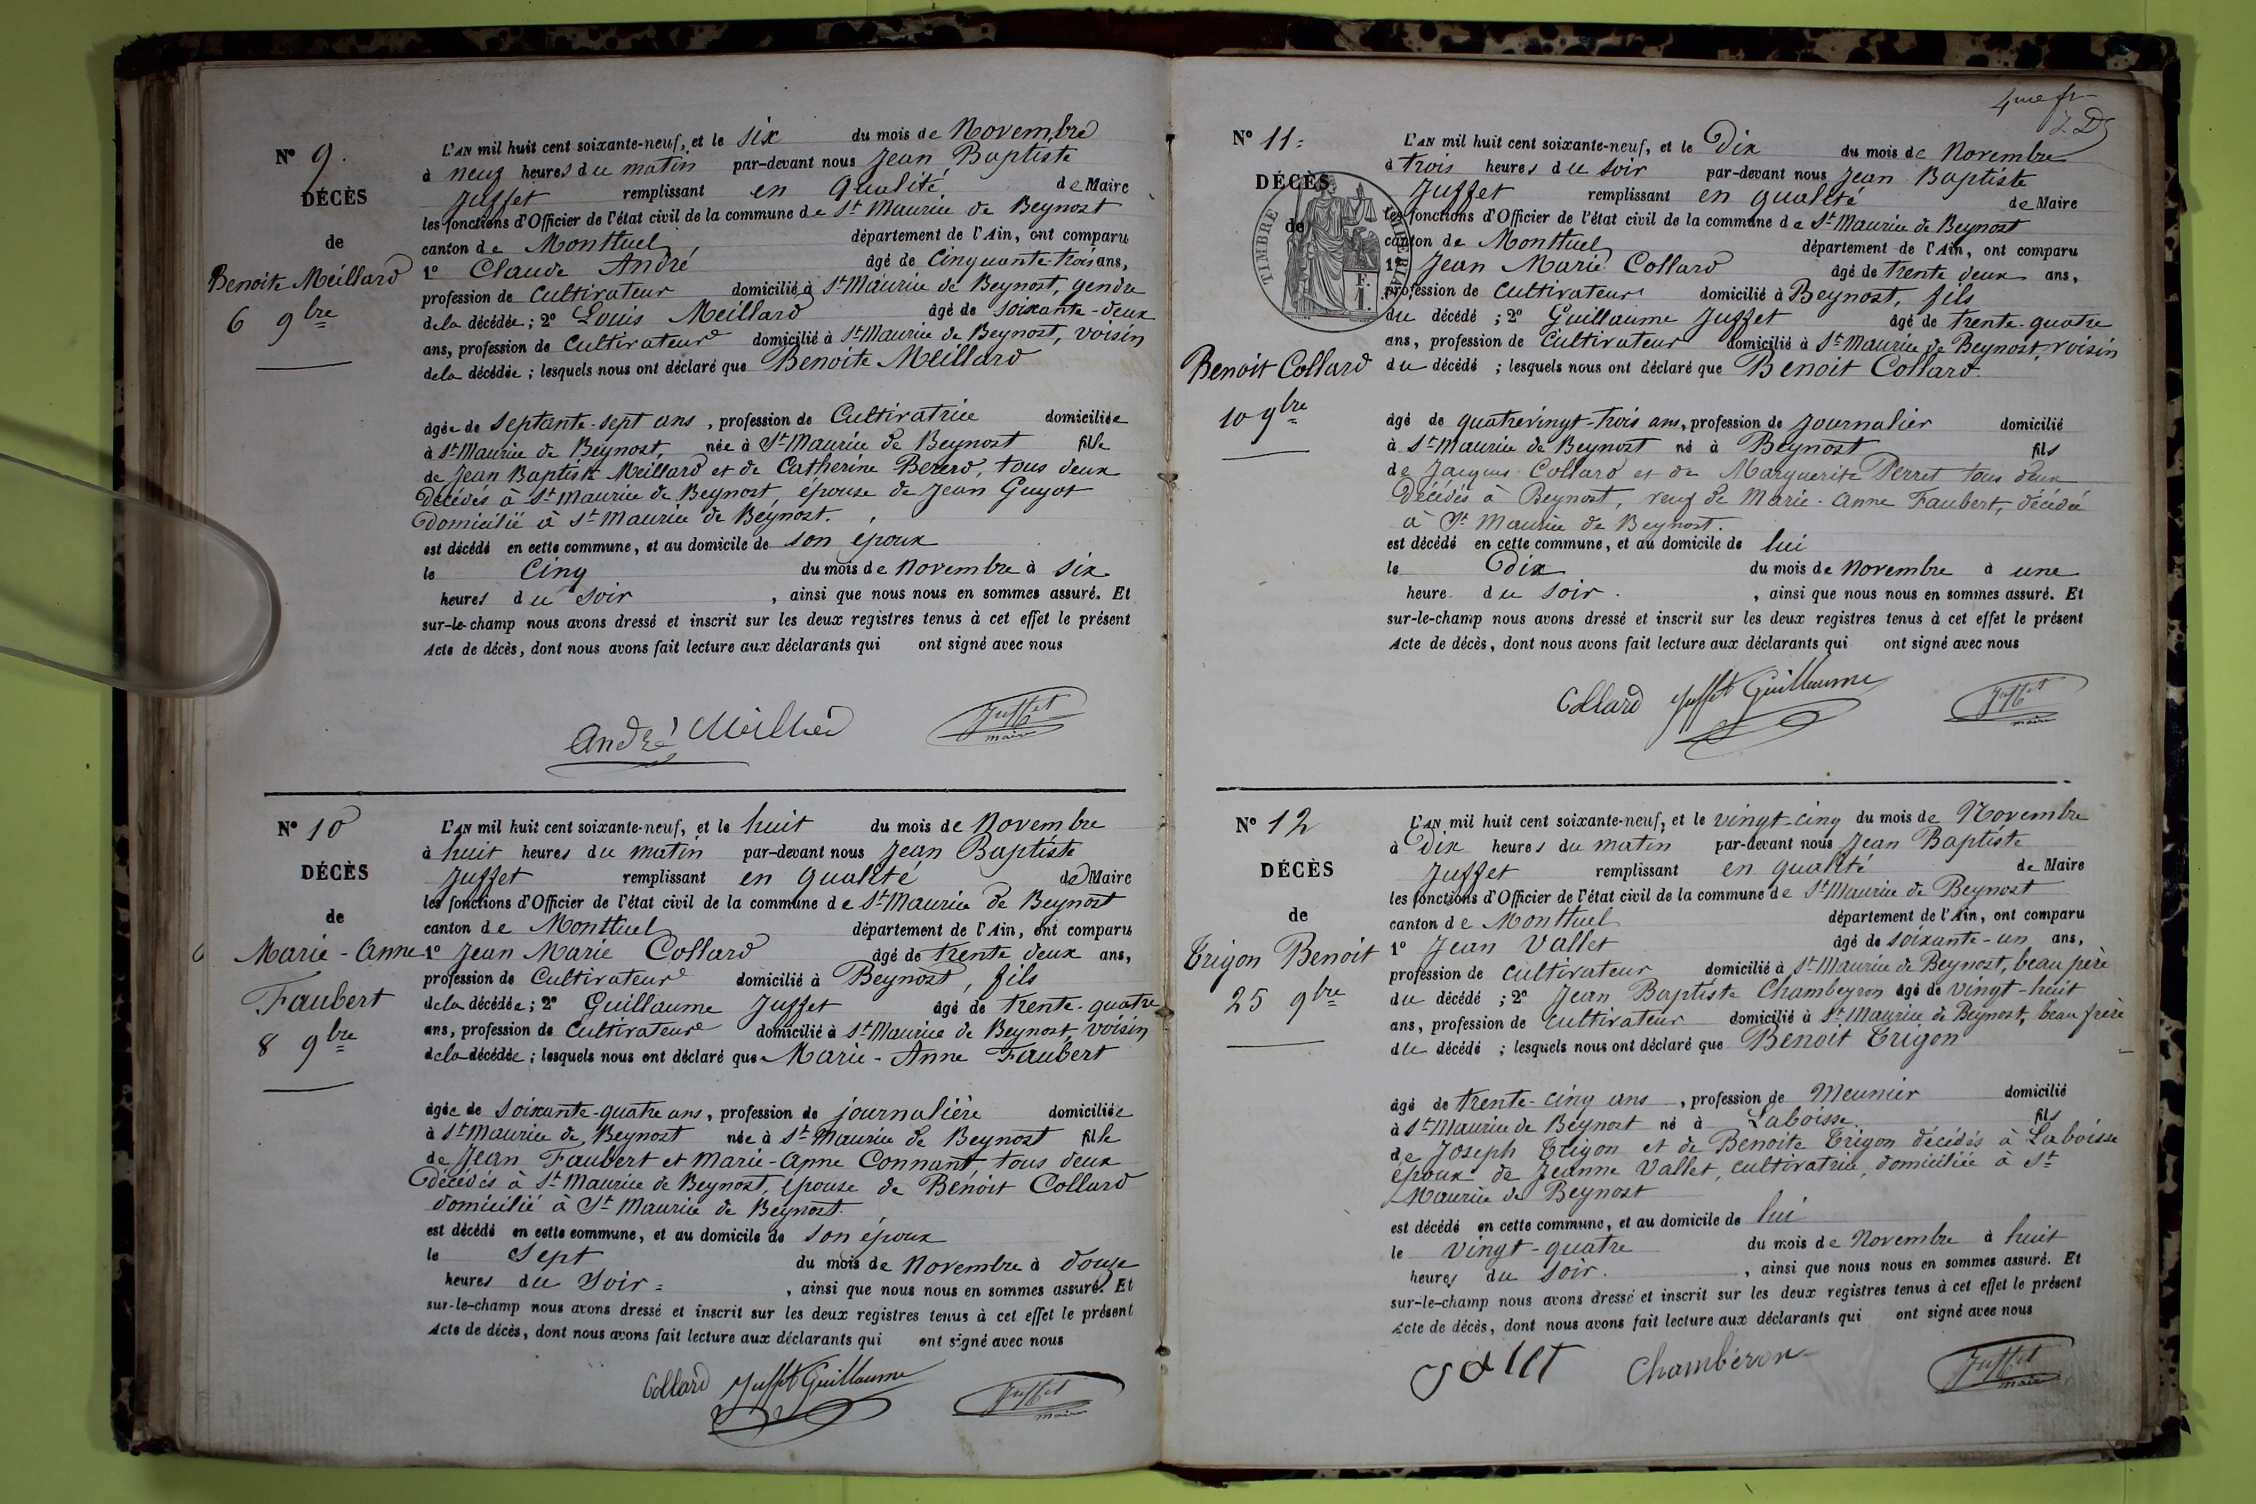 N° 9.
DÉCÈS
de
Benoite Meillard
6 9bre
L'AN mil huit cent soixante-neuf, et le six du mois de Novembre
à neuf heures du matin par-devant nous Jean Baptiste
Juffet remplissant en qualité de Maire
les fonctions d'Officier de l'état civil de la commune de St Maurice de Beynost
canton de Montluel, département de l'Ain, ont comparu
1° Claude André âgé de Cinquante-trois ans,
profession de Cultivateur domicilié à St Maurice de Beynost, gendre
de la décédée; 2° Louis Meillard âgé de soixante-deux
ans, profession de Cultivateur domicilié à St Maurice de Beynost, voisin
de la décédée; lesquels nous ont déclaré que Benoite Meillard
âgée de Septante-sept ans, profession de Cultivatrice domiciliée
à St Maurice de Beynost, née à St Maurice de Beynost fille
de Jean Baptiste Meillard et de Catherine tous deux
Décédés à St Maurice de Beynost, épouse de Jean Guyot
Domicilié à St Maurice de Beynost.
est décédé en cette commune, et au domicile de son époux
le Cinq du mois de Novembre à six
heures du soir, ainsi que nous nous en sommes assuré. Et
sur-le-champ nous avons dressé et inscrit sur les deux registres tenus à cet effet le présent
Acte de décès, dont nous avons fait lecture aux déclarants qui ont signé avec nous
André Juffet
maire
N° 10
DÉCÈS
de
Marie-Anne
Faubert
8 9bre
L'AN mil huit cent soixante-neuf, et le huit du mois de Novembre
à huit heures du matin par-devant nous Jean Baptiste
Juffet remplissant en qualité de Maire
les fonctions d'Officier de l'état civil de la commune de St Maurice de Beynost
canton de Montluel département de l'Ain, ont comparu
1° Jean Marie Collard âgé de trente deux ans,
profession de Cultivateur domicilié à Beynost, fils
de la décédée; 2° Guillaume Juffet âgé de trente-quatre
ans, profession de Cultivateur domicilié à St Maurice de Beynost, voisin
de la décédée; lesquels nous ont déclaré que Marie-Anne Faubert
âgée de Soixante-quatre ans, profession de journalière domiciliée
à St Maurice de Beynost née à St Maurice de Beynost fille
de Jean Faubert et Marie-Anne Connant, tous deux
Décédés à St Maurice de Beynost, épouse de Benoit Collard
domicilié à St Maurice de Beynost.
est décédé en cette commune, et au domicile de son époux
le Sept du mois de Novembre à douze
heures du Soir, ainsi que nous nous en sommes assuré. Et
sur-le-champ nous avons dressé et inscrit sur les deux registres tenus à cet effet le présent
Acte de décès, dont nous avons fait lecture aux déclarants qui ont signé avec nous
Collard Juffet Guillaume Juffet
maire
4me
N° 11.
DÉCÈS
de
TIMBRE IMPÉRIAL
Benoit Collard
10 9bre
L'AN mil huit cent soixante-neuf, et le Dix du mois de Novembre
à trois heures du soir par-devant nous Jean Baptiste
Juffet remplissant en qualité de Maire
les fonctions d'Officier de l'état civil de la commune de St Maurice de Beynost
canton de Montluel département de l'Ain, ont comparu
1° Jean Marie Collard âgé de trente deux ans,
profession de Cultivateur domicilié à Beynost, fils
du décédé; 2° Guillaume Juffet âgé de trente-quatre
ans, profession de Cultivateur domicilié à St Maurice de Beynost, voisin
du décédé; lesquels nous ont déclaré que Benoit Collard.
âgé de quatrevingt-trois ans, profession de Journalier domicilié
à St Maurice de Beynost né à Beynost fils
de Jacques Collard et de Marguerite Perret tous deux
Décédés à Beynost, veuf de Marie-Anne Faubert, décédée
à St Maurice de Beynost.
est décédé en cette commune, et au domicile de lui
le Dix du mois de Novembre à une
heure du soir., ainsi que nous nous en sommes assuré. Et
sur-le-champ nous avons dressé et inscrit sur les deux registres tenus à cet effet le présent
Acte de décès, dont nous avons fait lecture aux déclarants qui ont signé avec nous
Collard Juffet Guillaume Juffet
maire
N° 12
DÉCÈS
de
Trigon Benoit
25 9bre
L'AN mil huit cent soixante-neuf, et le vingt-cinq du mois de Novembre
à Dix heures du matin par-devant nous Jean Baptiste
Juffet remplissant en qualité de Maire
les fonctions d'Officier de l'état civil de la commune de St Maurice de Beynost
canton de Montluel département de l'Ain, ont comparu
1° Jean Vallet âgé de soixante-un ans,
profession de Cultivateur domicilié à St Maurice de Beynost, beau père
du décédé; 2° Jean Baptiste Chambeyron âgé de vingt-huit
ans, profession de Cultivateur domicilié à St Maurice de Beynost, beau frère
du décédé; lesquels nous ont déclaré que Benoit Trigon
âgé de trente-cinq ans, profession de Meunier domicilié
à St Maurice de Beynost né à Laboisse. fils
de Joseph Trigon et de Benoite Trigon décédés à Laboisse
époux de Jeanne Vallet, cultivatrice, domiciliée à St
Maurice de Beynost
est décédé en cette commune, et au domicile de lui
le Vingt-quatre du mois de Novembre à huit
heures du soir., ainsi que nous nous en sommes assuré. Et
sur-le-champ nous avons dressé et inscrit sur les deux registres tenus à cet effet le présent
Acte de décès, dont nous avons fait lecture aux déclarants qui ont signé avec nous
Chambéron Juffet
maire